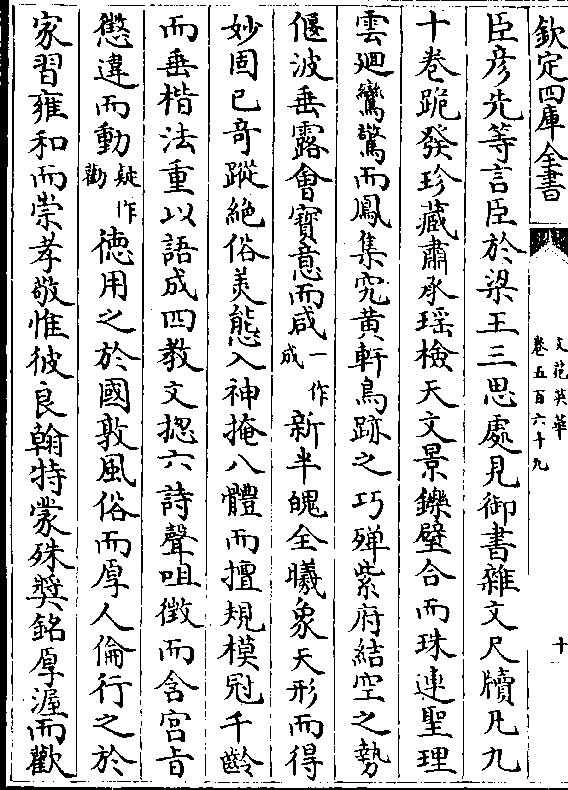 欽定四庫全書
文苑英華
卷五百六十九
十
臣彦先等言臣於梁王三思處見御書雜文尺牘凡九
十卷跪發珍藏肅承瑶檢天文景鑠璧合而珠連聖理
雲廻鸞驚而鳳集究黄軒鳥跡之巧殫紫府結空之勢
偃波垂露會寳意而咸一作成新半魄全曦象天形而得
妙固已竒蹤絶俗美態入神掩八體而擅規模冠千齡
而垂楷法重以語成四教文揔六詩聲咀徴而含宫㫖
懲違而動疑作勸徳用之於國敦風俗而厚人倫行之於
家習雍和而崇孝敬惟彼良翰特蒙殊奬銘厚渥而歡